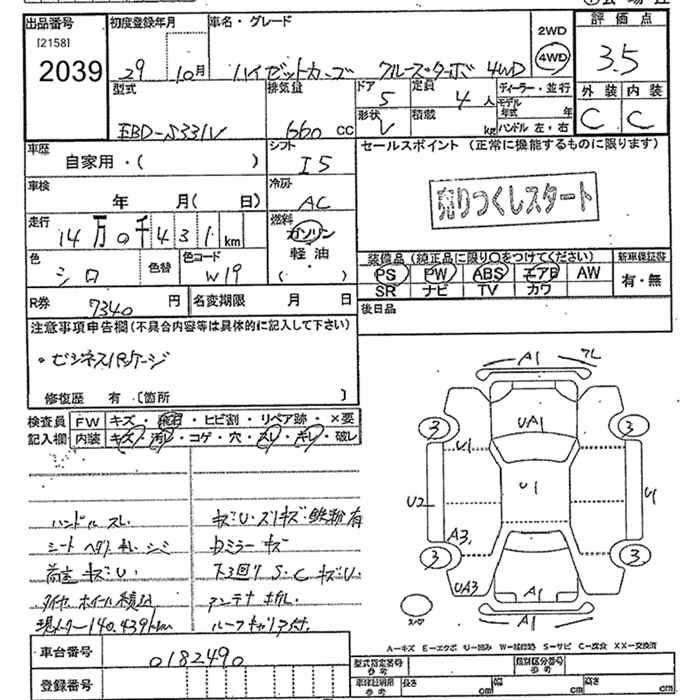 出品番号
[2158]
2039
初度登録年月
29 10月
車名・グレード
ハイゼットカーゴ クルーズターボ 4WD
2WD
4WD
評価点
3.5
外装 内装
C C
型式
EBD-S331V
排気量
660 CC
ドア
5
定員
4 人
形状
V
積載
kg
ディーラー・並行
モデル年式 年
ハンドル 左・右
車歴
自家用・( )
シフト
I5
車検
年 月( 日)
冷房
AC
走行
14万0千431km
燃料
ガソリン
軽油
( )
色
シロ
色替
色コード
W19
R券
7340 円
名変期限 月 日
セールスポイント (正常に機能するものに限ります)
売りつくしスタート
装備品 (純正品に限り○をつけてください)
PS PW ABS エアB AW
SR ナビ TV カワ
新車保証書
有・無
後日品
注意事項申告欄(不具合内容等は具体的に記入して下さい)
・ビジネスパッケージ
修復歴 有 〔箇所 〕
検査員記入欄
FW キズ・飛石・ヒビ割・リペア跡・×要
内装 キズ・汚レ・コゲ・穴・スレ・キレ・破レ
ハンドルスレ
シートヘタリ キレ シミ
荷室 キズU
タイヤホイール積込
現メーター140,439km
キズU・スリキズ・鉄粉有
Dミラーキズ
下回りS・C キズU
アンテナ ホルレ
ルーフキャリア付
車台番号
0182490
登録番号
A1
7L
UA1
3
3
U1
U1
U2
U1
A3
3
3
UA3
A1
A1
A-キズ E-エクボ U-凹み W-補修跡 S-サビ C-腐食 XX-交換済
型式指定番号
参考
類別区分番号
参考
車体証明用
参考
長さ cm
幅 cm
高さ cm